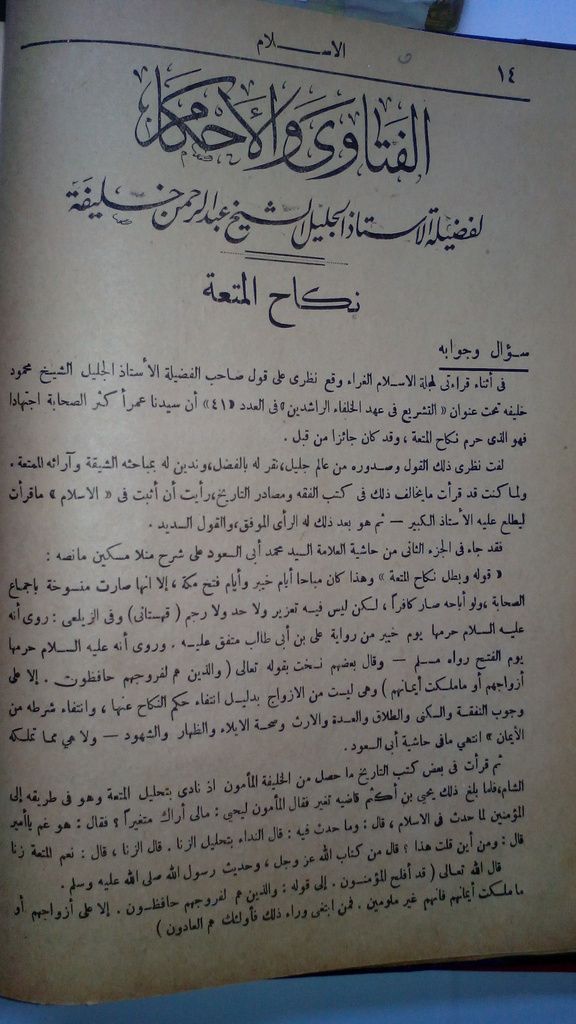 الاسلام
١٤
الفتاوى والأحكام
لفضيلة الاستاذ الجليل الشيخ عبد الرحمن خليفة
نكاح المتعة
سؤال وجوابه
فى أثناء قراءتى لمجلة الاسلام الغراء وقع نظرى على قول صاحب الفضيلة الأستاذ الجليل الشيخ محمود
خليفه تحت عنوان « التشريع فى عهد الخلفاء الراشدين » فى العدد « ٤١ » أن سيدنا عمر أكثر الصحابة اجتهادا
فهو الذى حرم نكاح المتعة ، وقد كان جائزا من قبل .
لفت نظرى ذلك القول وصدوره من عالم جليل، نقر له بالفضل، وندين له بمباحثه الشيقة وآرائه الممتعة .
ولما كنت قد قرأت مايخالف ذلك فى كتب الفقه ومصادر التاريخ، رأيت أن أثبت فى « الاسلام » ماقرأت
ليطلع عليه الأستاذ الكبير — ثم هو بعد ذلك له الرأى الموفق، والقول السديد .
فقد جاء فى الجزء الثانى من حاشية العلامة السيد محمد أبى السعود على شرح منلا مسكين مانصه :
« قوله وبطل نكاح المتعة » وهذا كان مباحا أيام خيبر وأيام فتح مكة ، إلا انها صارت منسوخة باجماع
الصحابة ، ولو أباحه صار كافراً ، لكن ليس فيه تعزير ولا حد ولا رجم ( قهستانى ) وفى الزيلعى : روى أنه
عليه السلام حرمها يوم خيبر من رواية على بن أبى طالب متفق عليه . وروى أنه عليه السلام حرمها
يوم الفتح رواه مسلم — وقال بعضهم نسخت بقوله تعالى ( والذين هم لفروجهم حافظون . إلا على
أزواجهم أو ماملكت أيمانهم ) وهى ليست من الازواج بدليل انتفاء حكم النكاح عنها ، وانتفاء شرطه من
وجوب النفقة والسكنى والطلاق والعدة والارث وصحة الايلاء والظهار والشهود — ولا هى مما تملكه
الأيمان » انتهى مافى حاشية أبى السعود .
ثم قرأت فى بعض كتب التاريخ ما حصل من الخليفة المأمون اذ نادى بتحليل المتعة وهو فى طريقه إلى
الشام، فلما بلغ ذلك يحيى بن أكثم قاضيه تغير فقال المأمون ليحيى : مالى أراك متغيراً ؟ فقال : هو غم ياأمير
المؤمنين لما حدث فى الاسلام ، قال : وما حدث فيه : قال النداء بتحليل الزنا . قال الزنا ، قال : نعم المتعة زنا
قال : ومن أين قلت هذا ؟ قال من كتاب الله عز وجل ، وحديث رسول الله صلى الله عليه وسلم .
قال الله تعالى ( قد أفلح المؤمنون . إلى قوله : والذين هم لفروجهم حافظون . إلا على أزواجهم أو
ماملكت أيمانهم فانهم غير ملومين . فمن ابتغى وراء ذلك فأولئك هم العادون )